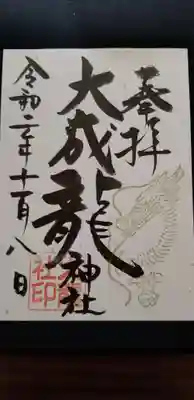 奉拝
大成龍神社
令和二年十一月八日
社印